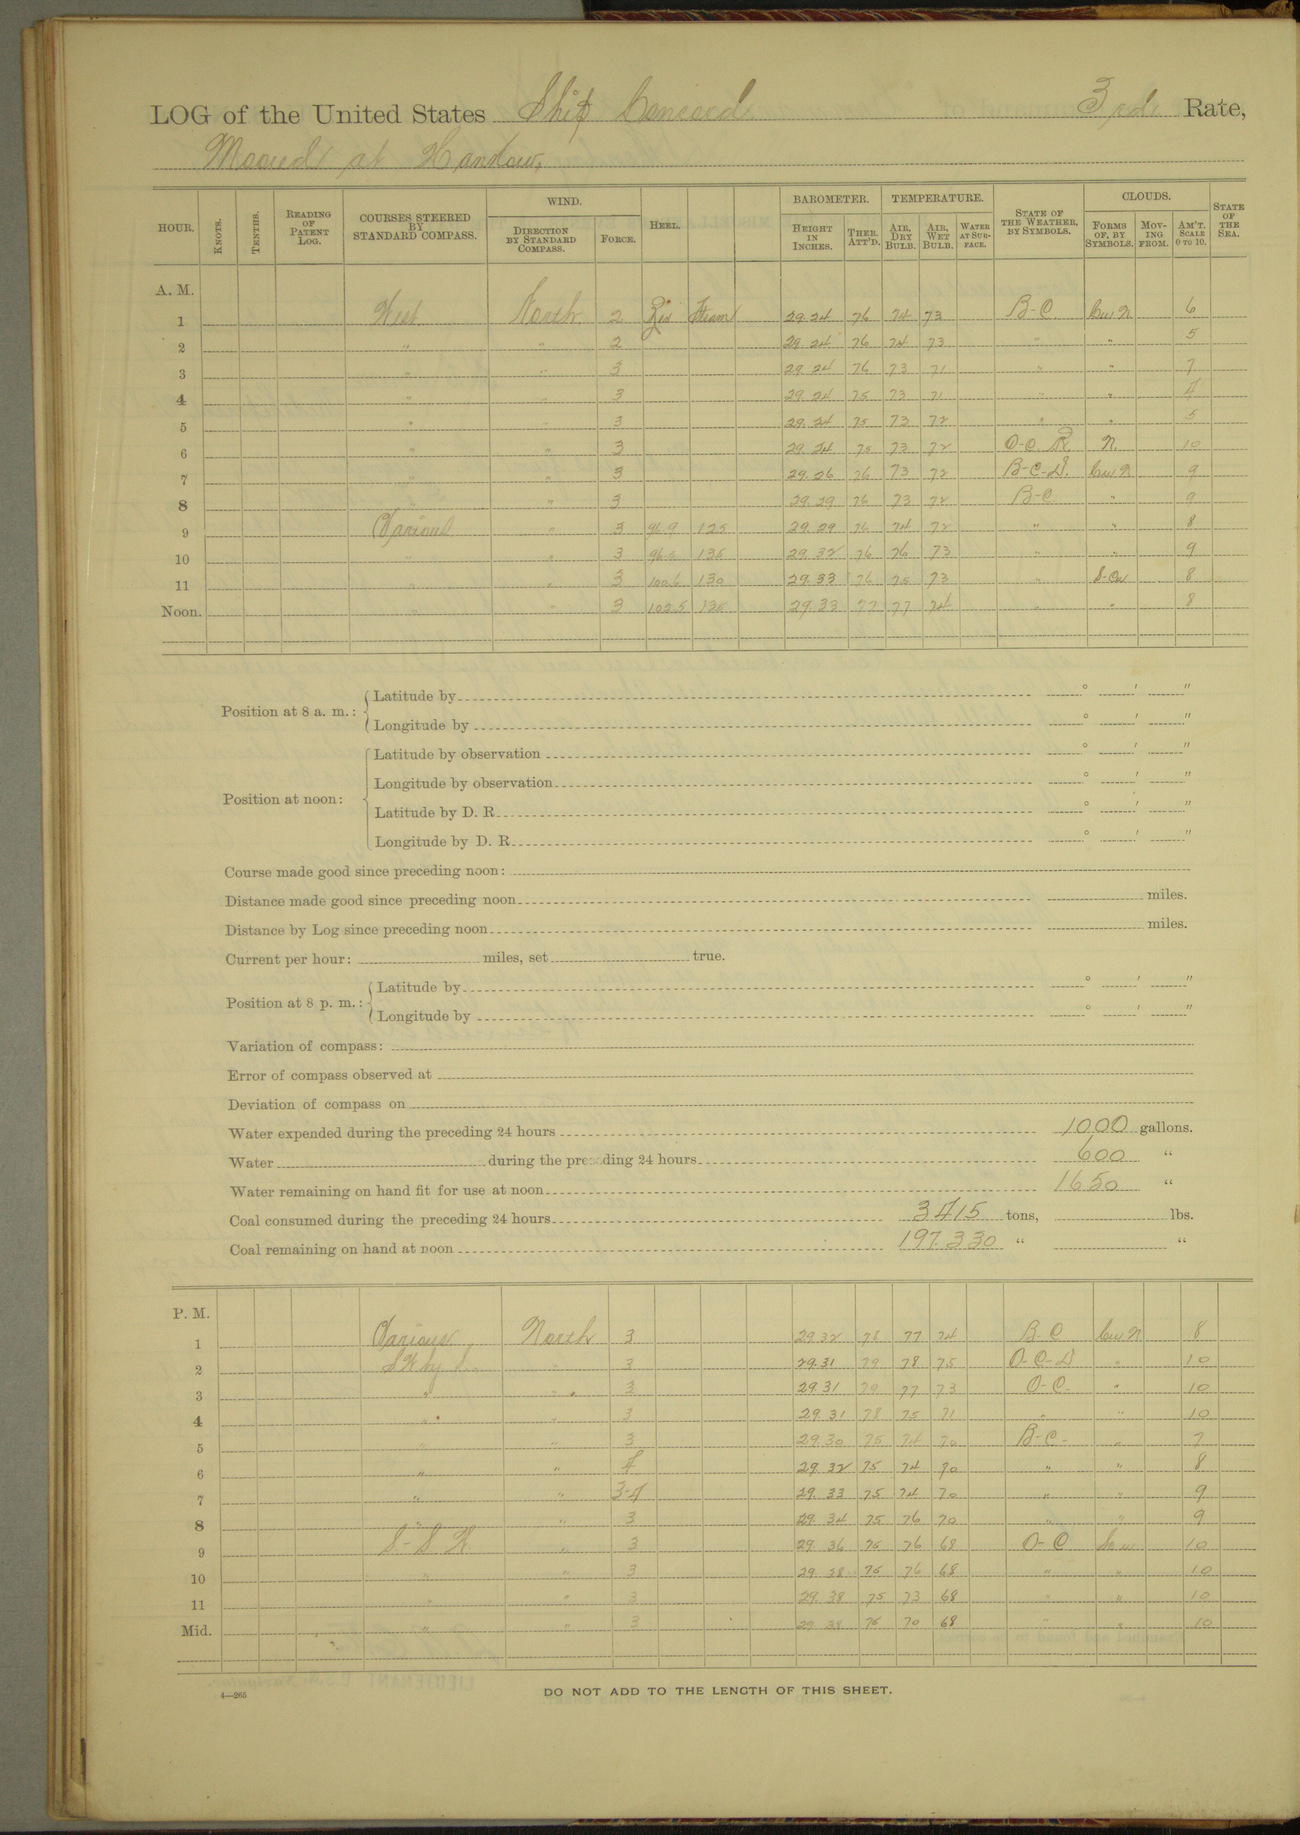 LOG of the United States Ship Concord 3rd Rate,
Moored at Hankow,
HOUR. KNOTS. TENTHS. READING OF PATENT LOG. COURSES STEERED BY STANDARD COMPASS. WIND. DIRECTION BY STANDARD COMPASS. FORCE. HEEL. BAROMETER. HEIGHT IN INCHES. THER. ATT'D. TEMPERATURE. AIR, DRY BULB. AIR, WET BULB. WATER AT SURFACE. STATE OF THE WEATHER, BY SYMBOLS. CLOUDS. FORMS OF, BY SYMBOLS. MOVING FROM. AM'T. SCALE 0 TO 10. STATE OF THE SEA.
A. M.
1 West North 2 Rev Steam 29.24 76 74 73 B-C Cu N 6
2 " " 2 29.24 76 74 73 " " 5
3 " " 3 29.24 76 73 71 " " 7
4 " " 3 29.24 75 73 71 " " 4
5 " " 3 29.24 75 73 72 " " 5
6 " " 3 29.24 75 73 72 O-C. R N. 10
7 " " 3 29.26 76 73 72 B-C-D. Cu N 9
8 " " 3 29.29 76 73 72 B-C " 9
9 Various " 3 96.9 125 29.29 76 74 72 " " 8
10 " " 3 135 29.32 76 76 73 " " 9
11 " " 3 100.6 130 29.33 76 75 73 " S-Cu 8
Noon. " " 3 102.5 135 29.33 77 77 74 " " 8
Position at 8 a. m.: Latitude by ° ′ ″
Longitude by ° ′ ″
Position at noon: Latitude by observation ° ′ ″
Longitude by observation ° ′ ″
Latitude by D. R. ° ′ ″
Longitude by D. R. ° ′ ″
Course made good since preceding noon:
Distance made good since preceding noon miles.
Distance by Log since preceding noon miles.
Current per hour: miles, set true.
Position at 8 p. m.: Latitude by ° ′ ″
Longitude by ° ′ ″
Variation of compass:
Error of compass observed at
Deviation of compass on
Water expended during the preceding 24 hours 1000 gallons.
Water during the preceding 24 hours 600 "
Water remaining on hand fit for use at noon 1650 "
Coal consumed during the preceding 24 hours 3415 tons, lbs.
Coal remaining on hand at noon 197.330 " "
P. M.
1 Various North 3 29.32 78 77 74 B-C Cu N 8
2 SW by S. " 3 29.31 79 78 75 O-C-D " 10
3 " " 3 29.31 79 77 73 O-C. " 10
4 " " 3 29.31 78 75 71 " " 10
5 " " 3 29.30 75 74 70 B-C- " 7
6 " " 4 29.32 75 74 70 " " 8
7 " " 3-4 29.33 75 74 70 " " 9
8 " " 3 29.34 75 76 70 " " 9
9 S-SW. " 3 29.36 75 76 68 O-C 10
10 " " 3 29.38 75 76 68 " " 10
11 " " 3 29.38 75 73 68 " " 10
Mid. " " 3 29.38 75 70 68 " " 10
4—265
DO NOT ADD TO THE LENGTH OF THIS SHEET.